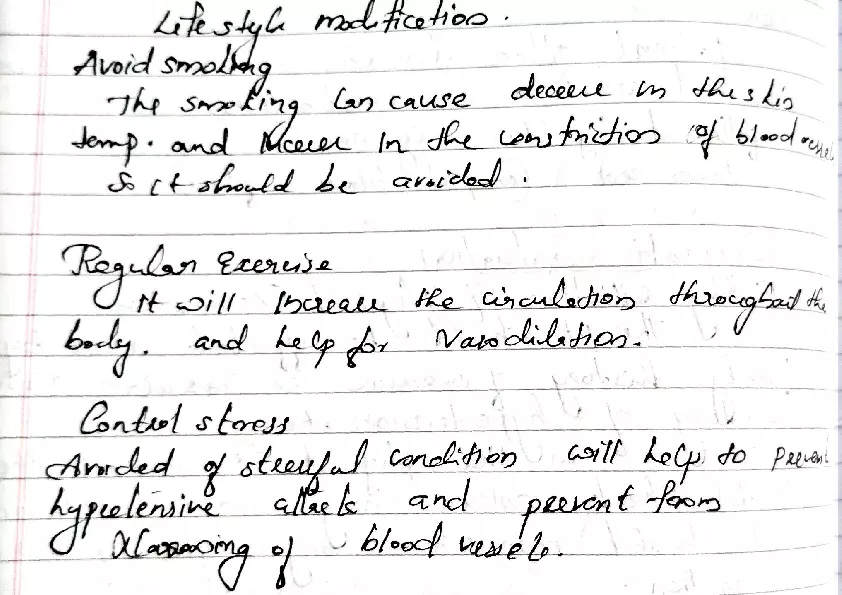 Life style modification.
Avoid smoking
The smoking can cause decrese in the skin
temp. and Increse In the constriction of blood vessel
So it should be avoided.
Regular Exercise
It will Increase the circulation throughout the
body. and help for Vasodilation.
Control stress
Avoided of stressful condition will help to prevent
hypertensive attack and prevent from
of blood vessels.